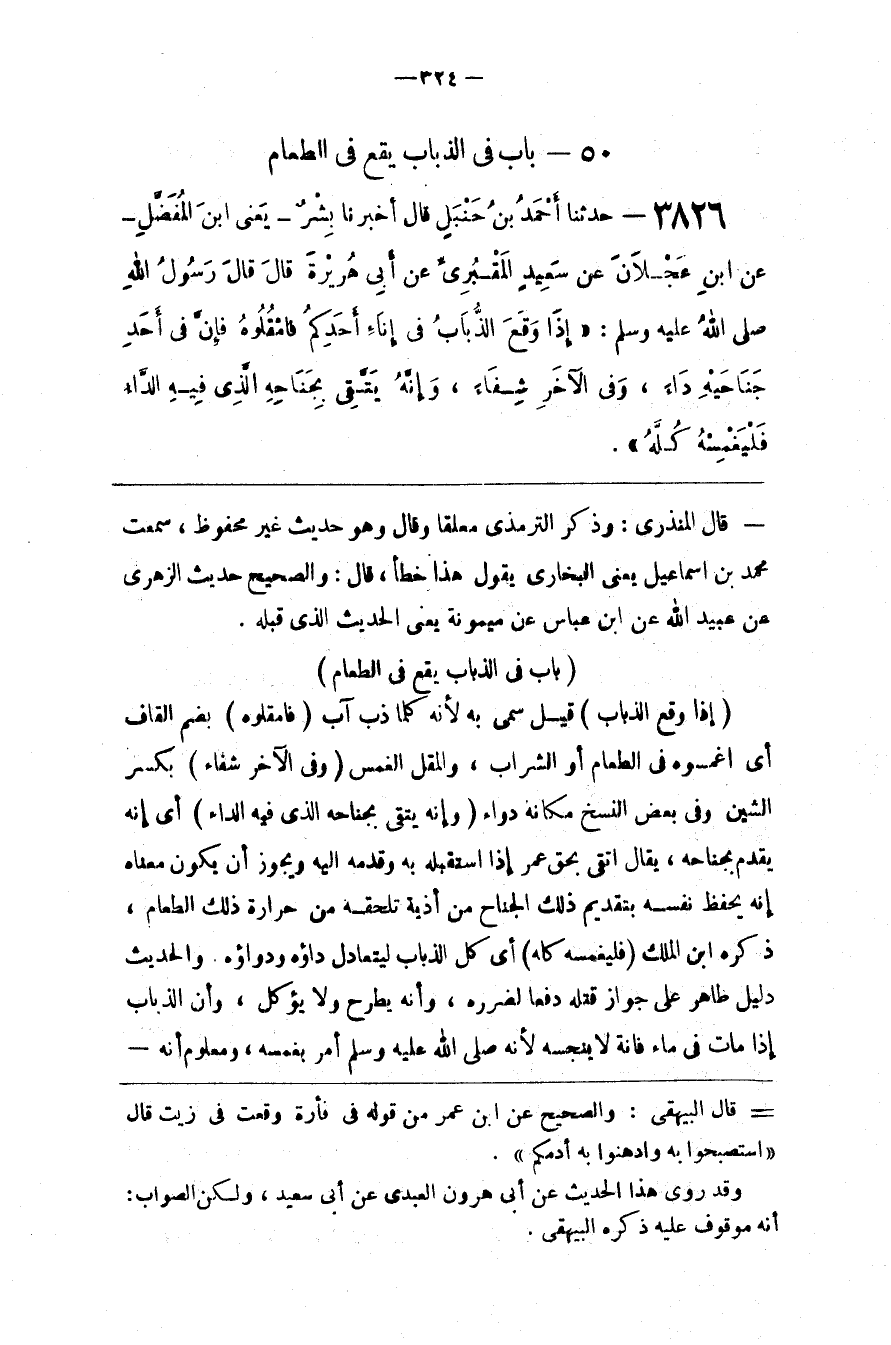 — ٣٢٤ —
٥٠ — باب فى الذباب يقع فى الطعام
٣٨٢٦ — حدثنا أَحْمَدُ بنُ حَنْبَلٍ قال أخبرنا بِشْرٌ - يَعْنى ابنَ الْمُفَضَّلِ -
عن ابنِ عَجْـلَانَ عن سَعِيدٍ الْمَقْـبُرِىِّ عن أَبِى هُرَيْرَةَ قالَ قالَ رَسُولُ اللهِ
صلى اللهُ عليه وسلم : « إِذَا وَقَعَ الذُّبَابُ فى إِنَاءِ أَحَدِكُمْ فَامْقُلُوهُ فإِنَّ فى أَحَدِ
جَنَاحَيْهِ دَاءً ، وَفى الْآخَرِ شِـفَاءً ، وَإِنَّهُ يَتَّـقِى بِجَنَاحِهِ الَّذِى فِيـهِ الدَّاءُ
فَلْيَغْمِسْهُ كُـلَّهُ » .
— قال المنذرى : وذكر الترمذى معلقا وقال وهو حديث غير محفوظ ، سمعت
محمد بن اسماعيل يعنى البخارى يقول هذا خطأ ، قال : والصحيح حديث الزهرى
عن عبيد الله عن ابن عباس عن ميمونة يعنى الحديث الذى قبله .
( باب فى الذباب يقع فى الطعام )
( إذا وقع الذباب ) قيـل سمى به لأنه كلما ذب آب ( فامقلوه ) بضم القاف
أى اغمسوه فى الطعام أو الشراب ، والمقل الغمس ( وفى الآخر شفاء ) بكسر
الشين وفى بعض النسخ مكانه دواء ( وإنه يتقى بجناحه الذى فيه الداء ) أى إنه
يقدم بجناحه ، يقال اتقى بحق عمر إذا استقبله به وقدمه اليه ويجوز أن يكون معناه
إنه يحفظ نفسـه بتقديم ذلك الجناح من أذية تلحقـه من حرارة ذلك الطعام ،
ذكره ابن الملك (فليغمسه كله) أى كل الذباب ليتعادل داؤه ودواؤه . والحديث
دليل ظاهر على جواز قتله دفعا لضرره ، وأنه يطرح ولا يؤكل ، وأن الذباب
إذا مات فى ماء فانة لاينجسه لأنه صلى الله عليه وسلم أمر بغمسه ، ومعلوم أنه —
= قال البيهقى : والصحيح عن ابن عمر من قوله فى فأرة وقعت فى زيت قال
«استصبحوا به وادهنوا به أدمكم » .
وقد روى هذا الحديث عن أبى هرون العبدى عن أبى سعيد ، ولـكن الصواب :
أنه موقوف عليه ذكره البيهقى .